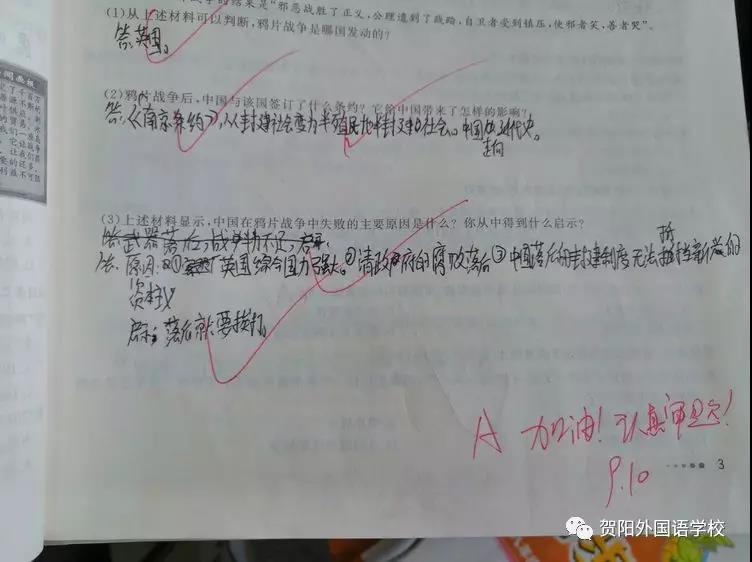 战争的结果是“邪恶战胜了正义，公理遭到了践踏，自卫者受到镇压，使邪者笑，善者哭”。
(1)从上述材料可以判断，鸦片战争是哪国发动的？
答：英国。
(2)鸦片战争后，中国与该国签订了什么条约？它给中国带来了怎样的影响？
答：《南京条约》，从封建社会变为半殖民地半封建社会。中国 近代史。
走向
(3)上述材料显示，中国在鸦片战争中失败的主要原因是什么？你从中得到什么启示？
答武器落后，战争
答：原因：① 英国综合国力强大。②清政府的腐败落后③中国落后的封建制度无法抵挡新兴的
资本主义
启示：落后就要挨打。
A 加油！认真审题！
9.10
3
贺阳外国语学校